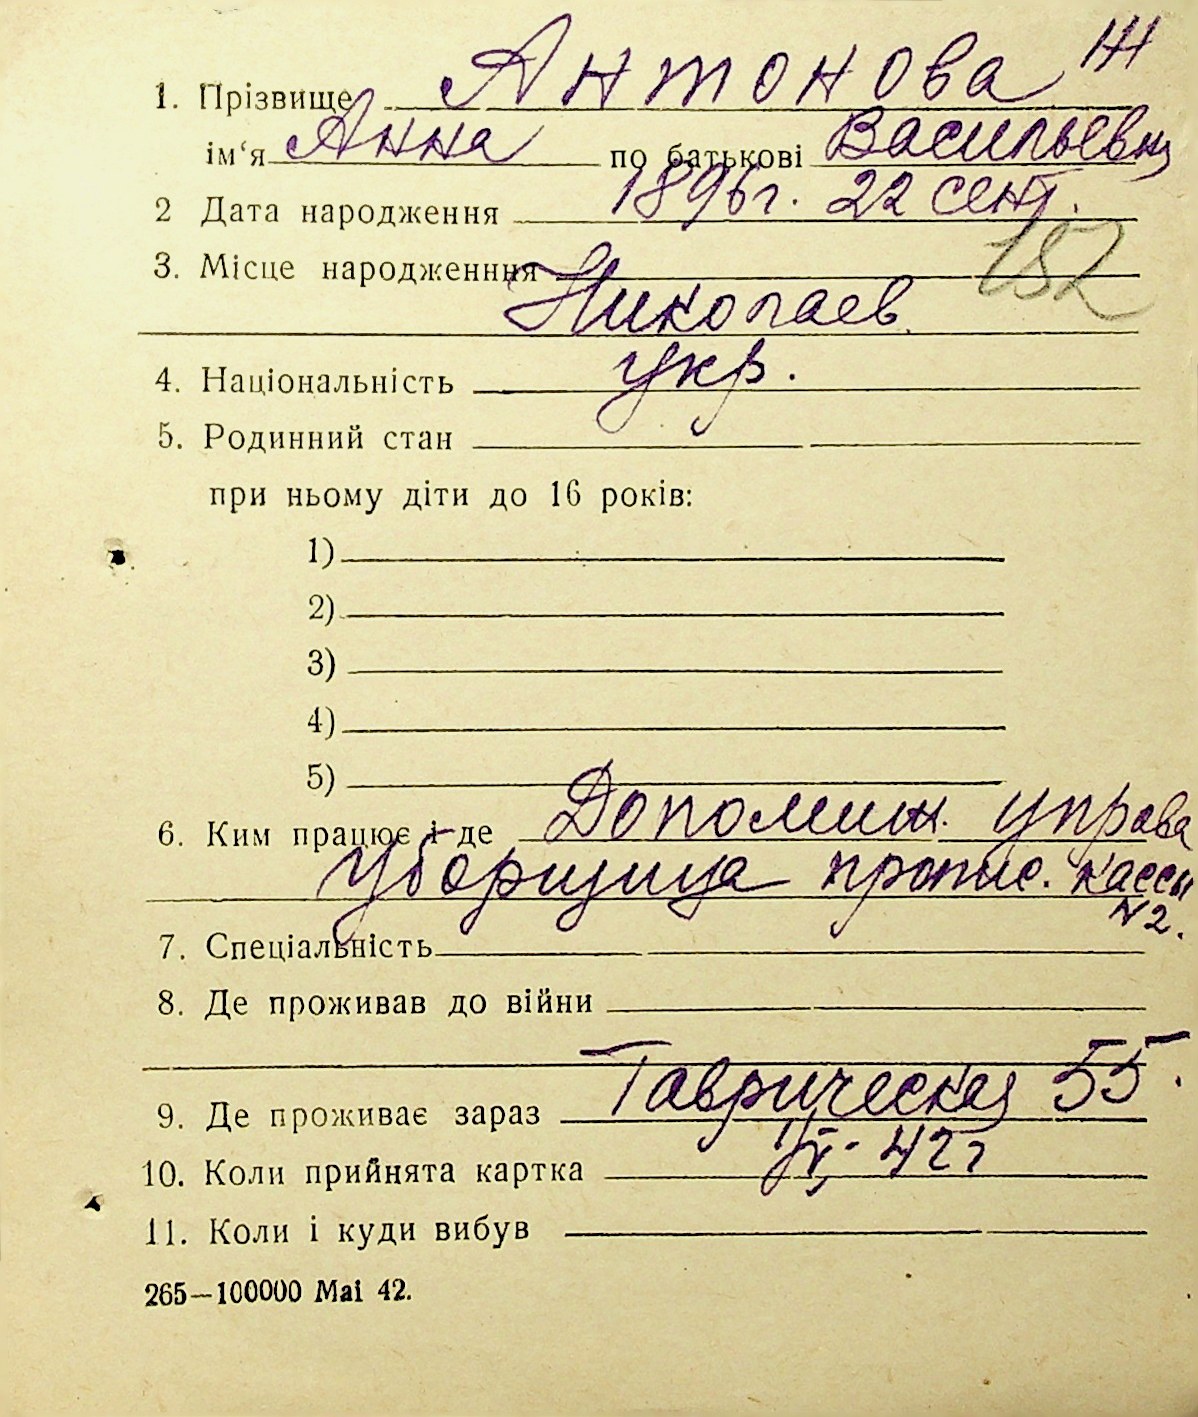 Ж
1. Прізвище Антонова
ім‘я Анна по батькові Васильевна
2 Дата народження 1896г. 22 сент.
3. Місце народженння 182
Николаев
4. Національність укр.
5. Родинний стан
при ньому діти до 16 років:
1)
2)
3)
4)
5)
6. Ким працює і де управа
Уборщица кассы
N2.
7. Спеціальність
8. Де проживав до війни
9. Де проживає зараз Таврическая 55.
10. Коли прийнята картка 42г
11. Коли і куди вибув
265—100000 Mai 42.